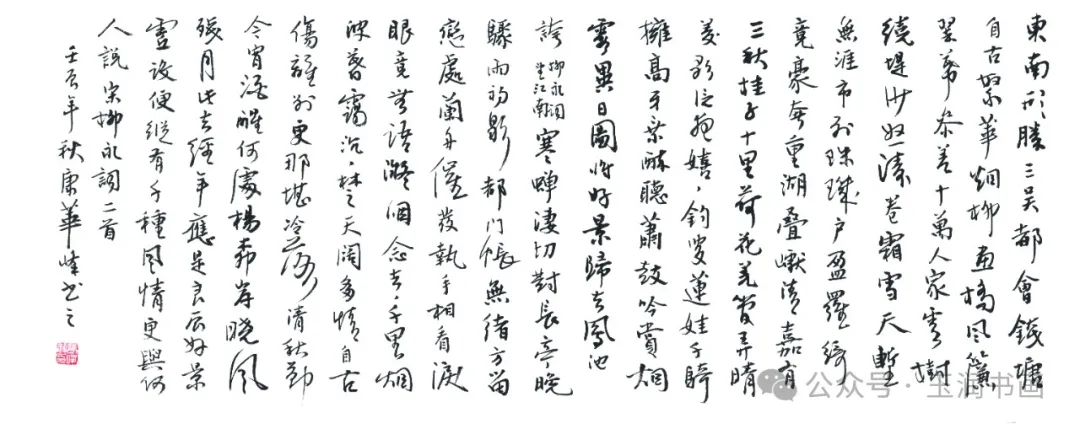 東南形勝三吳都會錢塘
自古繁華烟柳画橋风簾
翠幕叅差十萬人家雲樹
繞堤沙怒濤卷霜雪天塹
無涯市列珠璣户盈羅綺
竟豪奢重湖叠巘清嘉有
三秋桂子十里荷花羌管弄晴
菱歌泛夜嬉嬉釣叟蓮娃千騎
擁高牙乘醉聽蕭鼓吟赏烟
霞異日圖將好景歸去鳳池
誇柳永詞望江南寒蟬淒切對長亭晚
驟雨初歇都門帳無緒方留
戀處蘭舟催發執手相看淚
眼竟無語凝咽念去々千里烟
波暮靄沉々楚天闊多情自古
傷離别更那堪冷落清秋節
今宵酒醒何處楊柳岸曉风
殘月此去經年應是良辰好景
虛設便縱有千種风情更與何
人説宋柳永詞二首
壬辰年秋康華峰书之
公众号·玉润书画